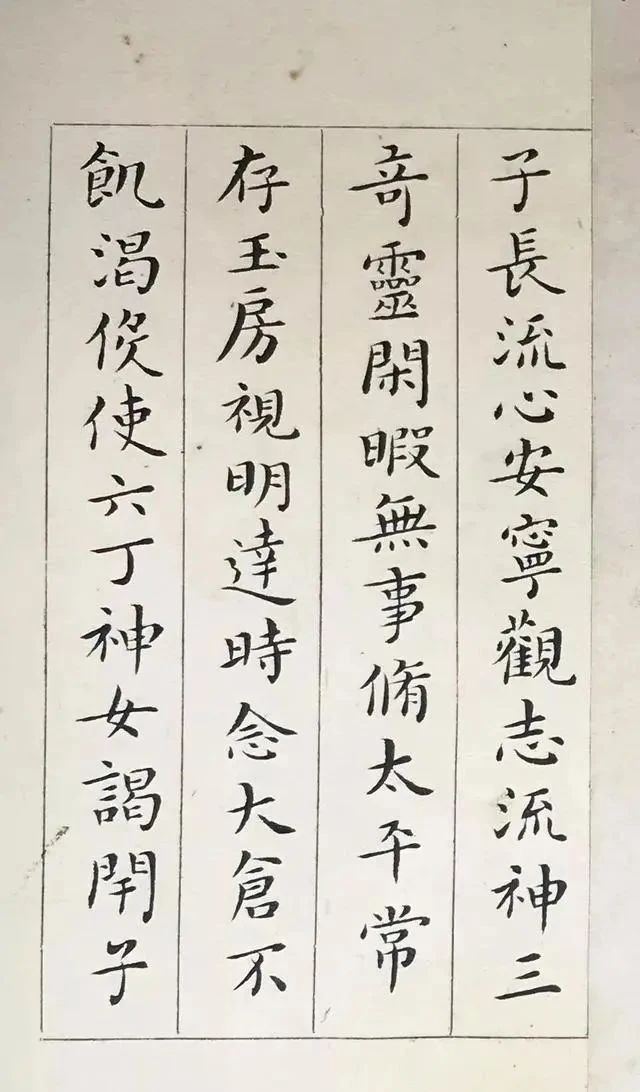 子長流心安寧觀志流神三
奇靈閑暇無事脩太平常
存玉房視明達時念大倉不
飢渴役使六丁神女謁閇子